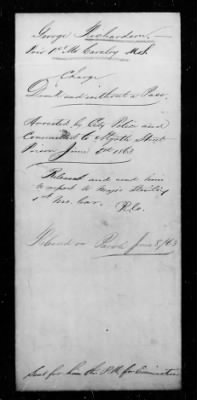 George Richardson —
Priv 1st Mo Cavalry
Charge
Drunk and without a Pass.
Arrested by City Police and
Committed to Myrtle Street
Prison June 6th 1863
Released and send him
to report to Major
1st Mo. Cav.
Released on Parole June 8/63
Sent for him the P.M. for Examination